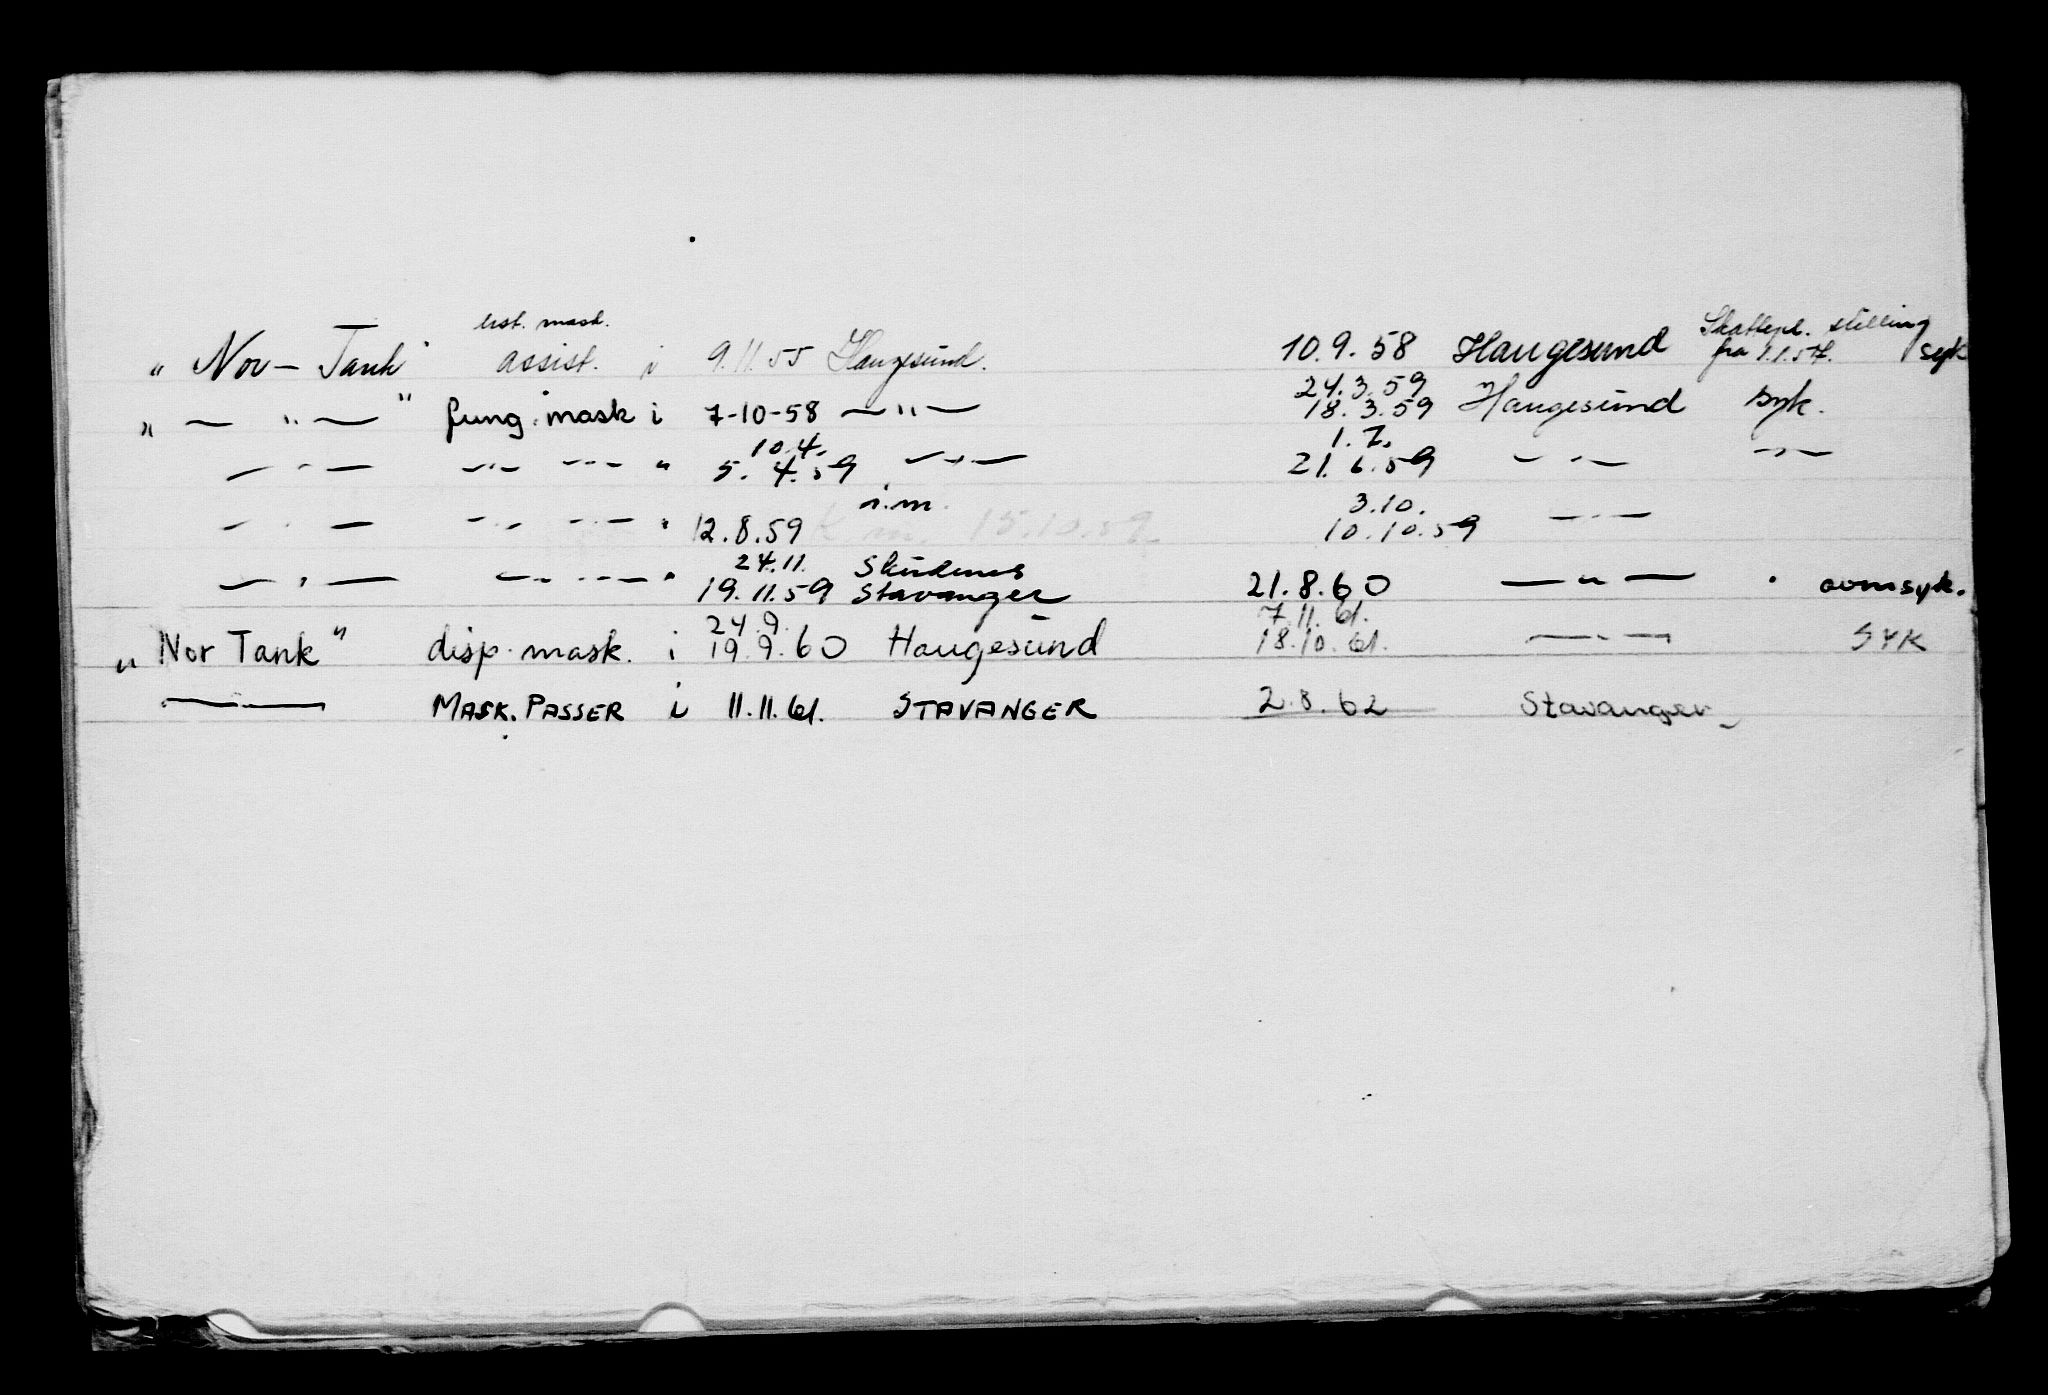 best. mask. Skattepl. stilling
„ Nor-Tank" assist. i 9.11.55 Haugesund. 10.9.58 Haugesund fra 1.1.57. syk
24.3.59
„ — " — " fung. mask i 7-10-58 — " — 18.3.59 Haugesund syk.
10.4. 1.7.
— " — — " — — " — " 5.4.59 — " — 21.6.59 — " — — " —
i.m. 3.10.
— " — — " — — " — " 12.8.59 K m. 15.10.59 10.10.59 — " —
24.11. Skudenes
— " — — " — — " — " 19.11.59 Stavanger 21.8.60 — " — . armsyk.
24.9. 7.11.61.
„ Nor Tank" disp. mask. i 19.9.60 Haugesund 18.10.61. — " — SYK
— " — MASK. PASSER i 11.11.61. STAVANGER 2.8.62 Stavanger